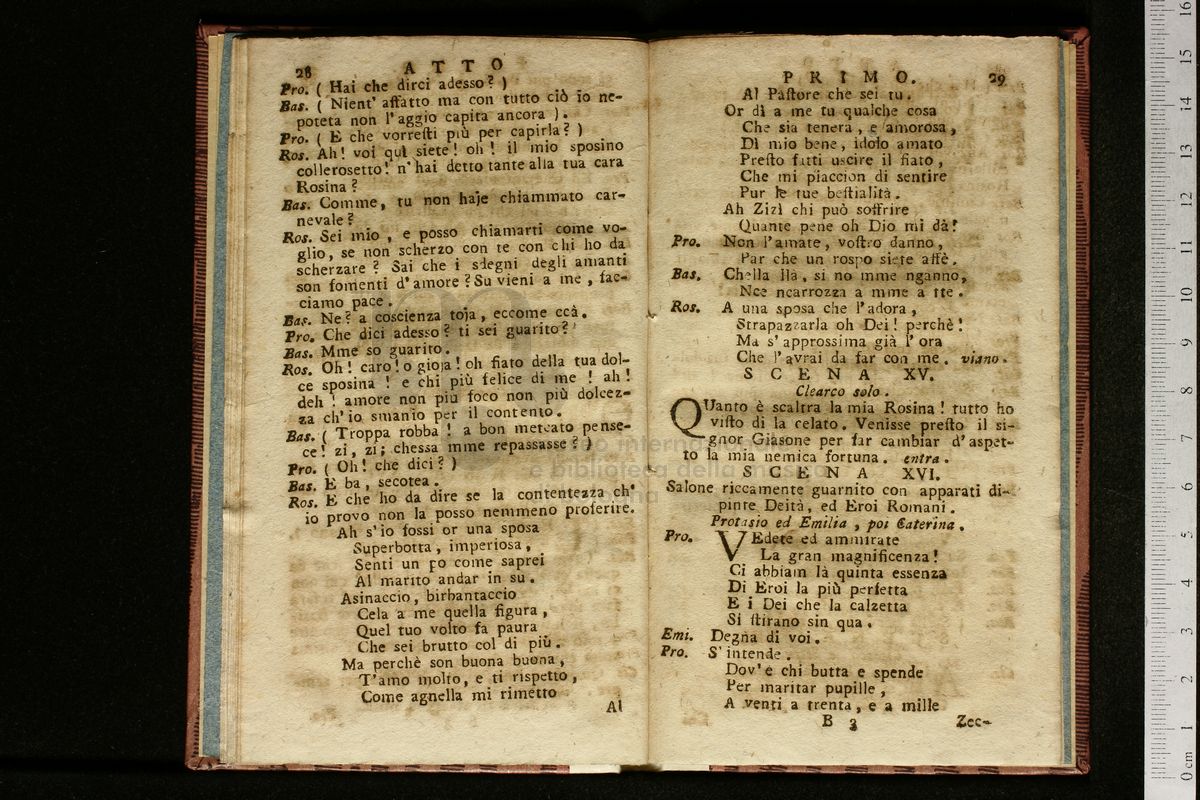 28 ATTO
Pro. ( Hai che dirci adesso? )
Bas. ( Nient' affatto ma con tutto ciò io ne-
poteta non l'aggio capita ancora ).
Pro. ( E che vorreſti più per capirla? )
Ros. Ah! voi quì siete! oh! il mio sposino
collerosetto! n'hai detto tante alla tua cara
Rosina?
Bas. Comme, tu non haje chiammato car-
nevale?
Ros. Sei mio, e posso chiamarti come vo-
glio, se non scherzo con te con chi ho da
scherzare? Sai che i sdegni degli amanti
son fomenti d'amore? Su vieni a me, fac-
ciamo pace.
Bas. Ne? a coscienza toja, eccome ccà.
Pro. Che dici adesso? ti sei guarito?
Bas. Mme so guarito.
Ros. Oh! caro! o gioja! oh fiato della tua dol-
ce sposina! e chi più felice di me! ah!
deh! amore non più foco non più dolcez-
za ch'io smanio per il contento.
Bas. ( Troppa robba! a bon mercato pense-
ce! zi, zi; chessa mme repassasse? )
Pro. ( Oh! che dici? )
Bas. E ba, secotea.
Ros. E che ho da dire se la contentezza ch'
io provo non la posso nemmeno proferire.
Ah s'io fossi or una sposa
Superbotta, imperiosa,
Senti un po come saprei
Al marito andar in su.
Asinaccio, birbantaccio
Cela a me quella figura,
Quel tuo volto fa paura
Che sei brutto col di più.
Ma perchè son buona buona,
T'amo molto, e ti rispetto,
Come agnella mi rimetto
Al
PRIMO. 29
Al Paſtore che sei tu.
Or dì a me tu qualche cosa
Che sia tenera, e amorosa,
Dì mio bene, idolo amato
Preſto fatti uscire il fiato,
Che mi piaccion di sentire
Pur le tue beſtialità.
Ah Zizì chi può soffrire
Quante pene oh Dio mi dà!
Pro. Non l'amate, voſtro danno,
Par che un rospo siete affè.
Bas. Chella llà, si no mme nganno,
Nce ncarrozza a mme a tte.
Ros. A una sposa che l'adora,
Strapazzarla oh Dei! perchè!
Ma s'approssima già l'ora
Che l'avrai da far con me. viano.
SCENA XV.
Clearco solo.
QUanto è scaltra la mia Rosina! tutto ho
viſto di la celato. Venisse preſto il si-
gnor Giasone per far cambiar d'aspet-
to la mia nemica fortuna. entra.
SCENA XVI.
Salone riccamente guarnito con apparati di-
pinte Deità, ed Eroi Romani.
Protasio ed Emilia, poi Caterina.
Pro. VEdete ed ammirate
La gran magnificenza!
Ci abbiam là quinta essenza
Di Eroi la più perfetta
E i Dei che la calzetta
Si ſtirano sin qua.
Emi. Degna di voi.
Pro. S'intende.
Dov'è chi butta e spende
Per maritar pupille,
A venti a trenta, e a mille
B 3 Zec-